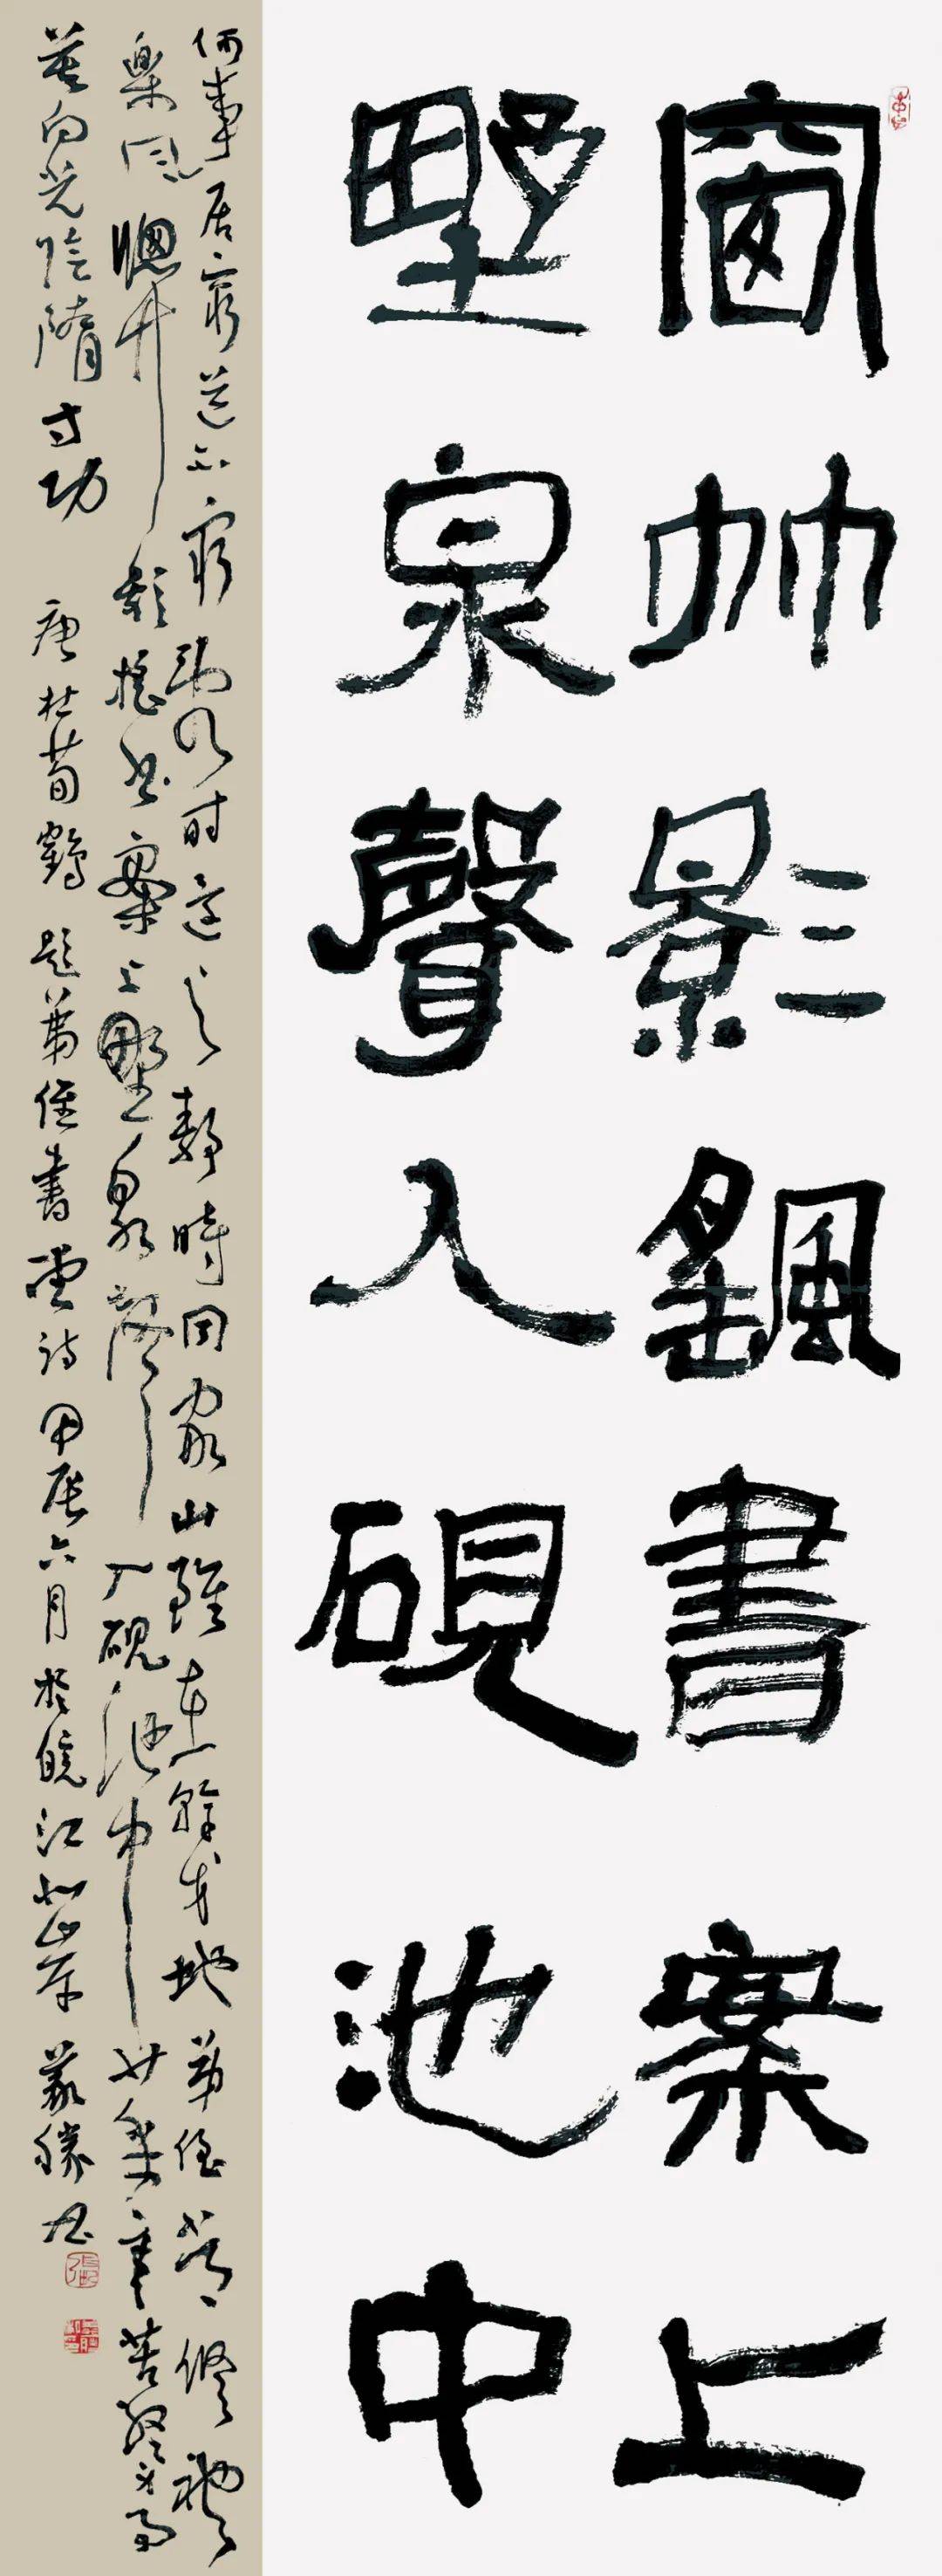 窗竹影颻書案上
野泉聲入硯池中
何事居窮道不窮亂时還與静時同家山雖在幹戈地弟侄常修禮
樂風牕竹影摇书案上野泉聲入硯池中少年辛苦終身事
莫向光陰隋寸功 唐杜荀鶴題弟侄書堂诗甲辰六月於皖江北岸